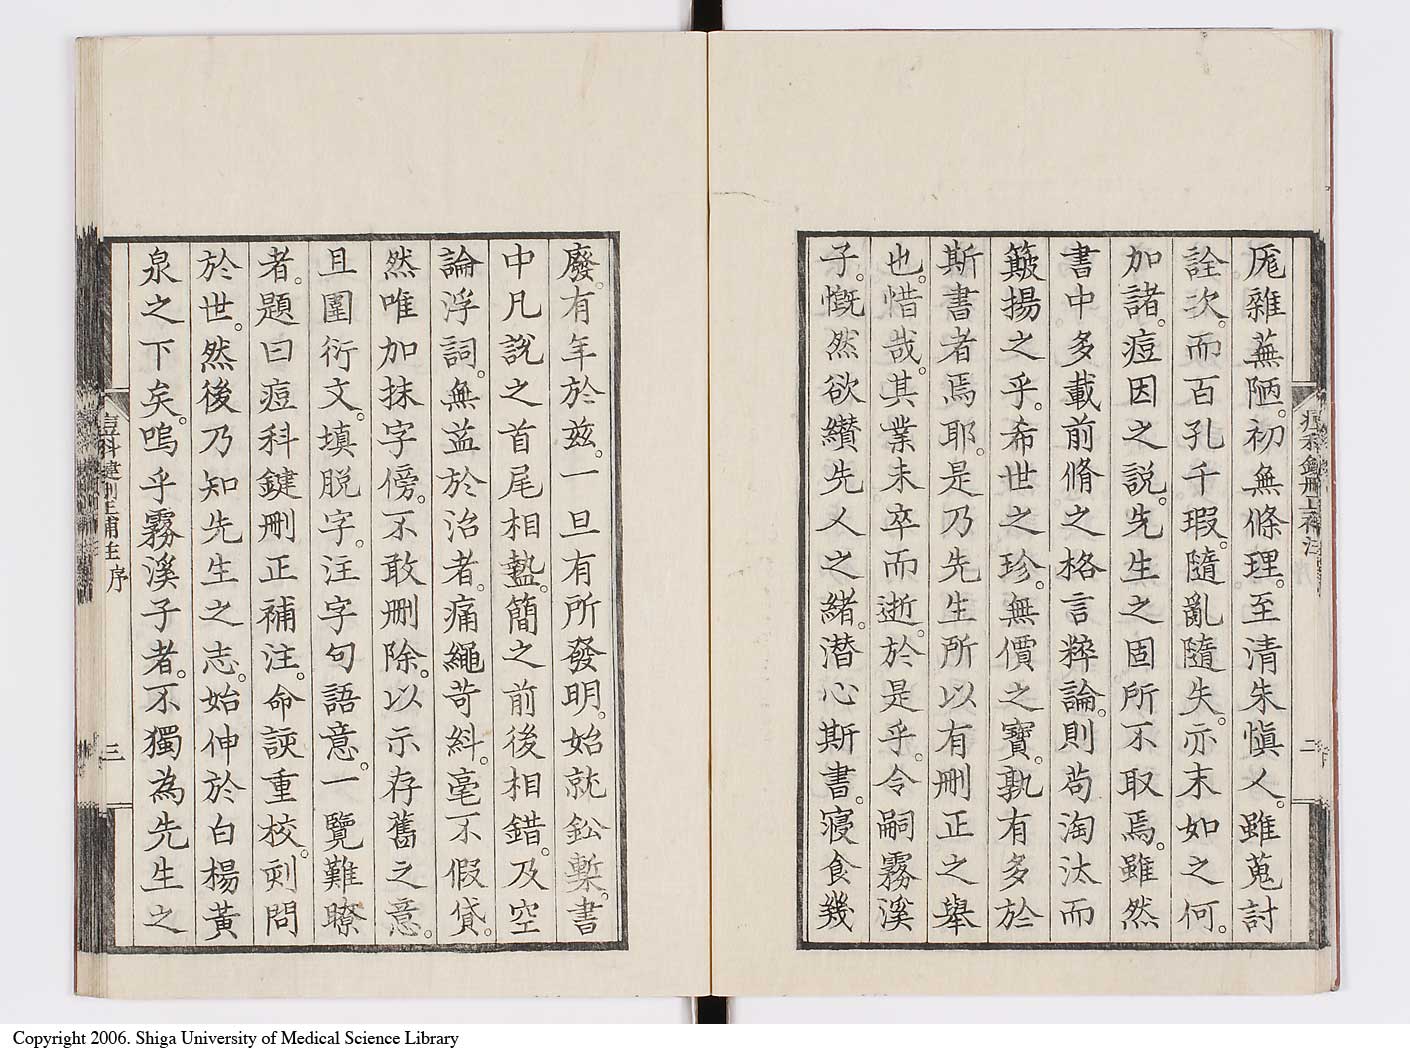 厖雜蕪陋。初無條理。至清朱愼人。雖蒐討
詮次。而百孔千瑕。隨亂隨失。亦末如之何。
加諸。痘因之說。先生之固所不取焉。雖然
書中多載前脩之格言粹論。則苟淘汰而
簸揚之乎。希世之珍。無價之寶。孰有多於
斯書者焉耶。是乃先生所以有刪正之舉
也。惜哉。其業未卒而逝。於是乎。令嗣霧溪
子。慨然欲纘先人之緒。潜心斯書。寢食幾
廢。有年於茲。一旦有所發明。始就鉛槧。書
中凡說之首尾相
簡之前後相錯。及空
論浮詞。無益於治者。痛繩苛糾。毫不假貸。
然唯加抹字傍。不敢刪除。以示存舊之意。
且圍衍文。塡脱字。注字句語意。一覽難瞭
者。題曰痘科鍵刪正補注。命
重校。刻問
於世。然後乃知先生之志。始伸於白楊黃
泉之下矣。嗚乎霧溪子者。不獨為先生之
痘科鍵刪正補注 序
三
二
Copyright 2006. Shiga University of Medical Science Library